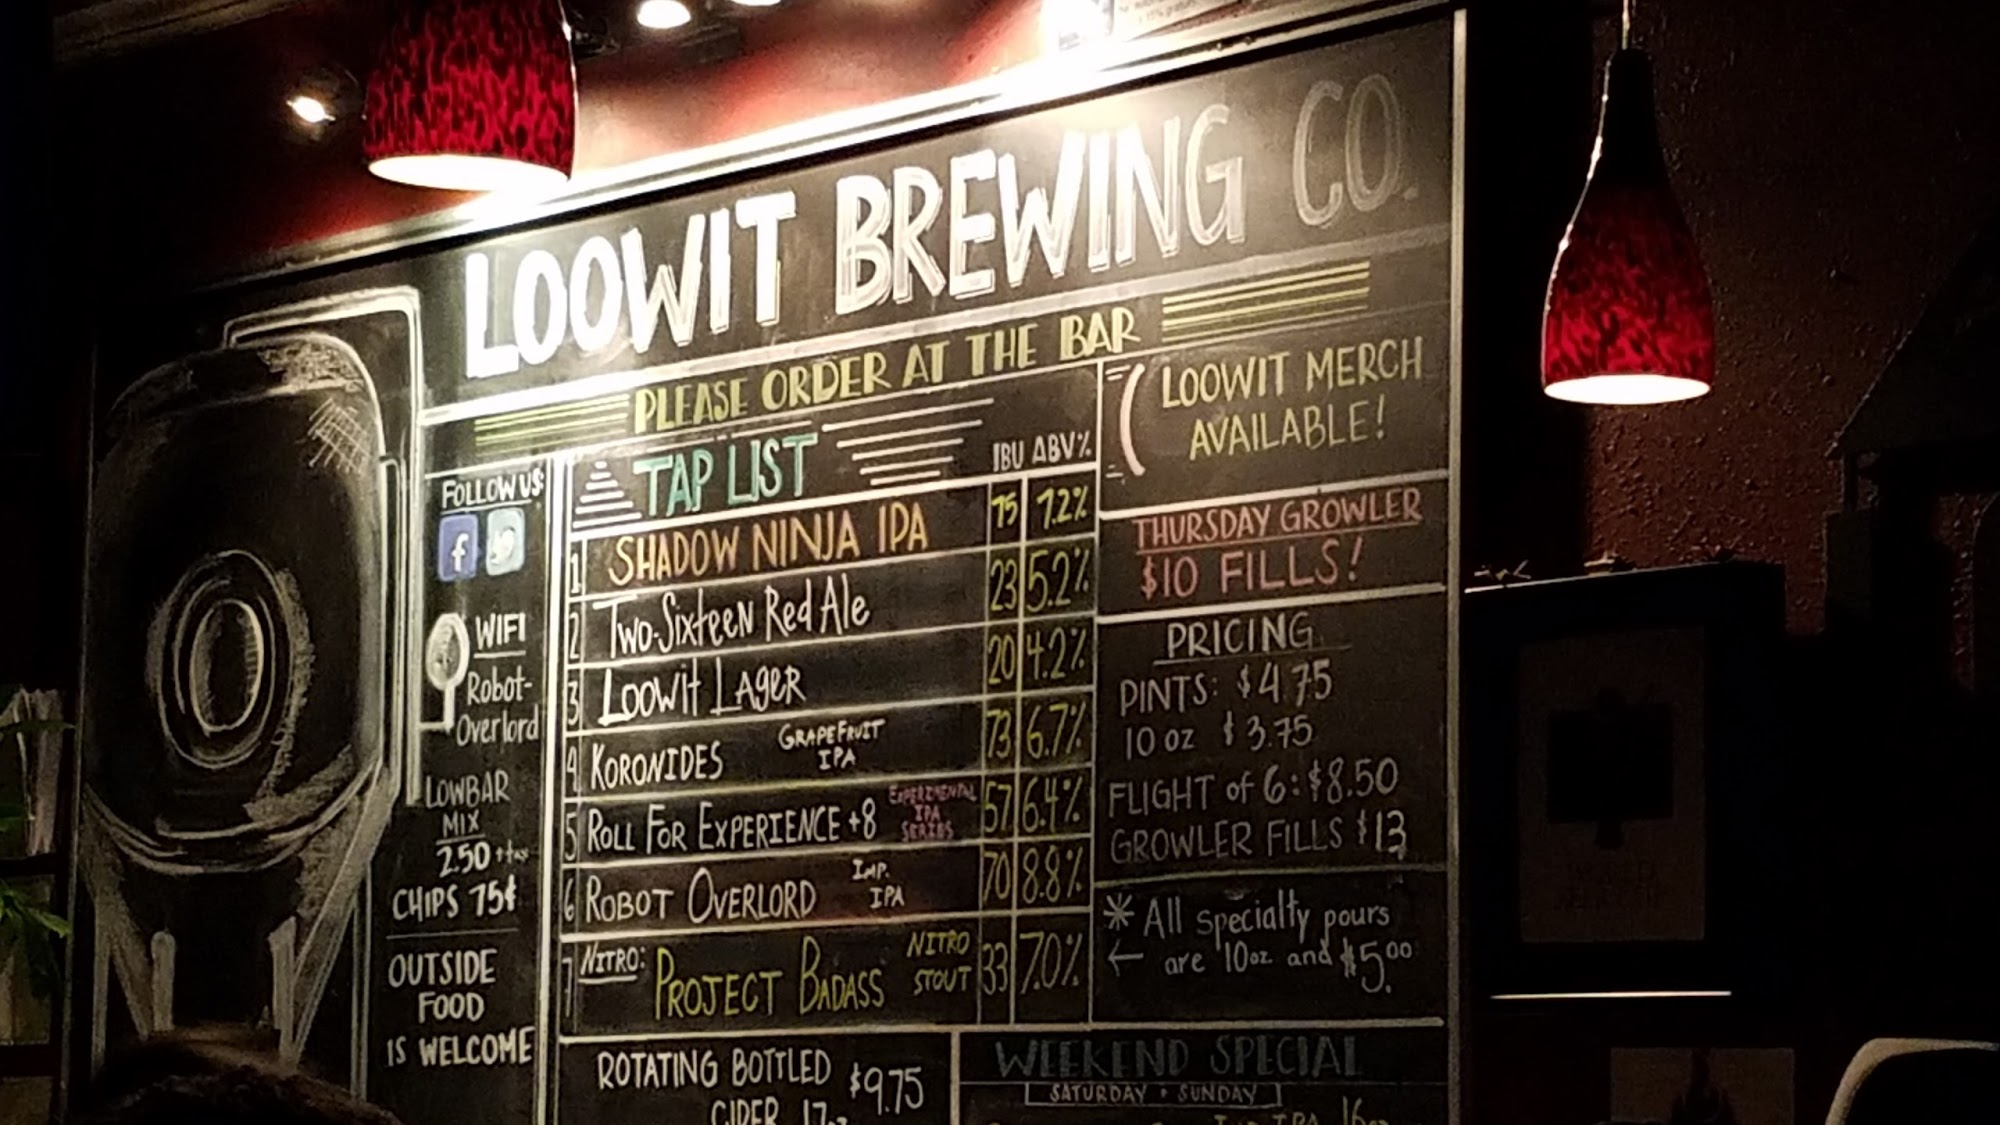 LOOWIT BREWING CO.
PLEASE ORDER AT THE BAR
FOLLOW US:
f
WIFI
Robot-
Overlord
LOWBAR
MIX
2.50 +tax
CHIPS 75¢
OUTSIDE
FOOD
IS WELCOME
TAP LIST IBU ABV%
1 SHADOW NINJA IPA 75 7.2%
2 Two-Sixteen Red Ale 23 5.2%
3 Loowit Lager 20 4.2%
4 KORONIDES GRAPEFRUIT IPA 73 6.7%
5 ROLL FOR EXPERIENCE +8 EXPERIMENTAL IPA SERIES 57 6.4%
6 ROBOT OVERLORD IMP. IPA 70 8.8%
7 NITRO: PROJECT BADASS NITRO STOUT 33 7.0%
LOOWIT MERCH
AVAILABLE!
THURSDAY GROWLER
$10 FILLS!
PRICING
PINTS: $4.75
10 oz $3.75
FLIGHT of 6: $8.50
GROWLER FILLS $13
* All specialty pours
← are 10oz and $5.00
ROTATING BOTTLED $9.75
CIDER 17oz
WEEKEND SPECIAL
SATURDAY • SUNDAY
IPA 16oz